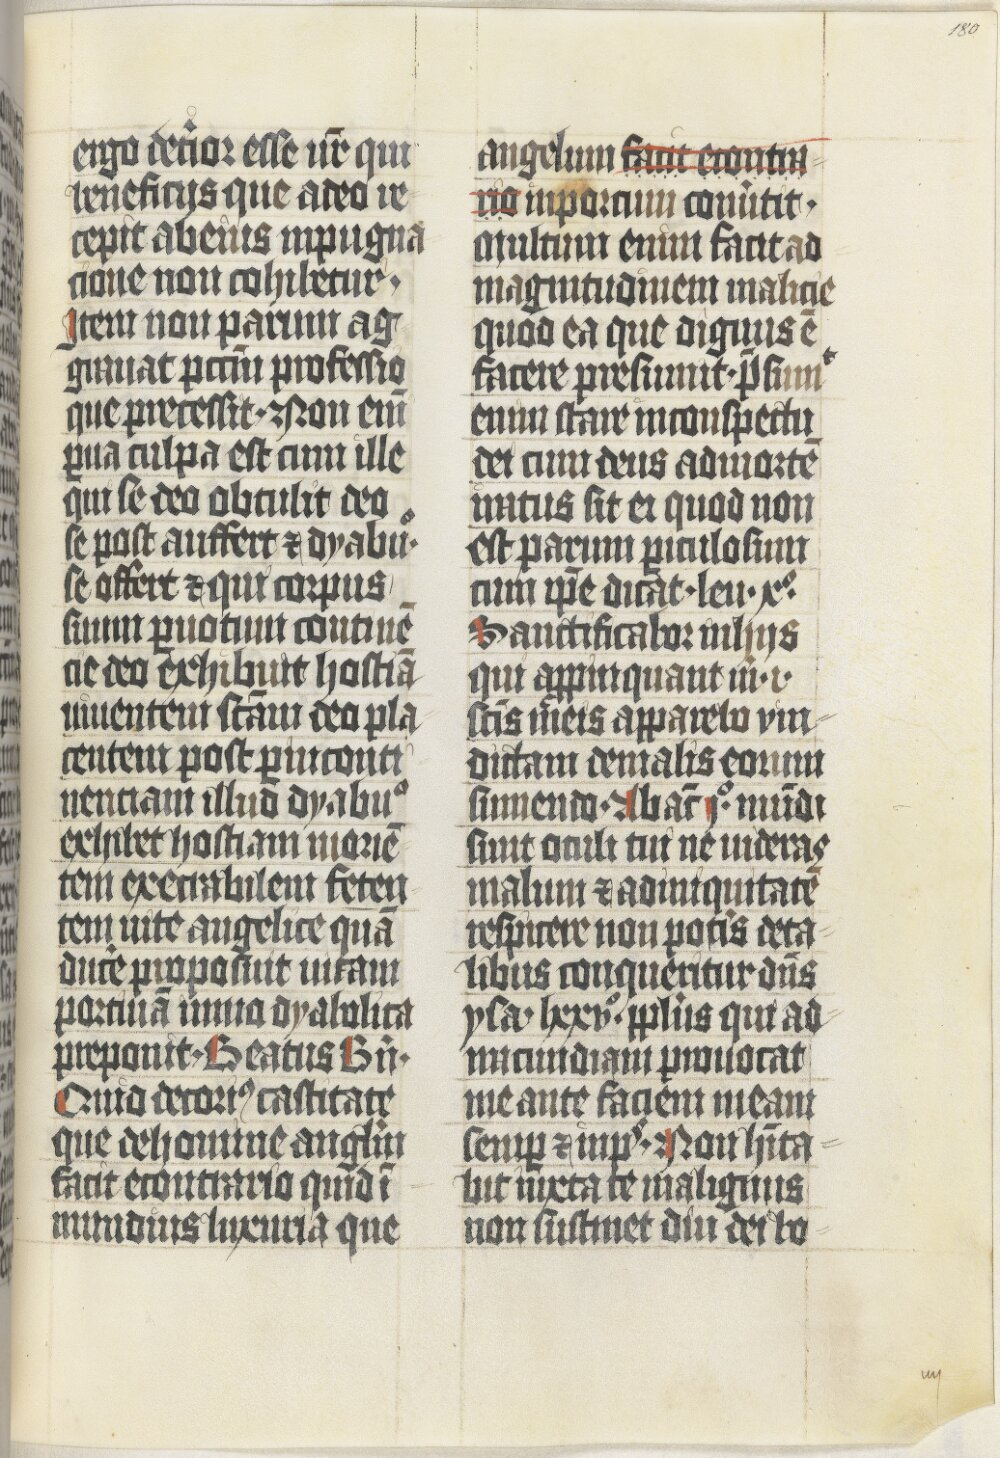 180
ergo deterior esse vr̄ qui
beneficijs que adeo re
cepit ab eius inpugna
cione non cohibetur·
Item non parum ag
grauat pctm̄ professio
que precessit· Non enī
p̄ua culpa est cum ille
qui se deo obtulit deo
se post auffert ⁊ dyabuͦ·
se offert ⁊ qui corpus
suum p uotum continē
cie deo exhibuit hostiā
uiuentem sc̄am deo pla
centem post p inconti
nentiam illud dyabuͦ
exhibet hostiam moriē
tem execrabilem feten
tem uite angelice quā
ducē proposuit uitam
porcinā immo dyabolica
preponit· Beatus B̄n·
Quid decoriꝰ castitate
que de homine angl̄m
facit econtrario quid ī
mundius luxuria que
angelum facit econtra
rio in porcum conūtit·
Multum enim facit ad
magnitudinem malicie
quod ea que dignus ē
facere presumit· p̄sumͭ
enim stare in conspectu
dei cum deus ad mortē
iratus sit ei quod non
est parum p̱iculosum
cum ip̄e dicat· leu· xͦ·
Sanctificabor in hijs
qui app̱inquant m̄· i·
sc̄is meis apparebo vin
dictam de malis eorum
sumendo· Abac̄ jͦ· mūdi
sunt oculi tui ne uideas
malum ⁊ ad iniquitatē
respicere non potis de ta
libus conqueritur dn̄s
ysa· lxvͦ· pp̄lus qui ad
iracundiam prouocat
me ante faciem meam
semp̱ ⁊ inpͦ· Non h̄ita
bit iuxta te malignus
non sustinet diu dei bo